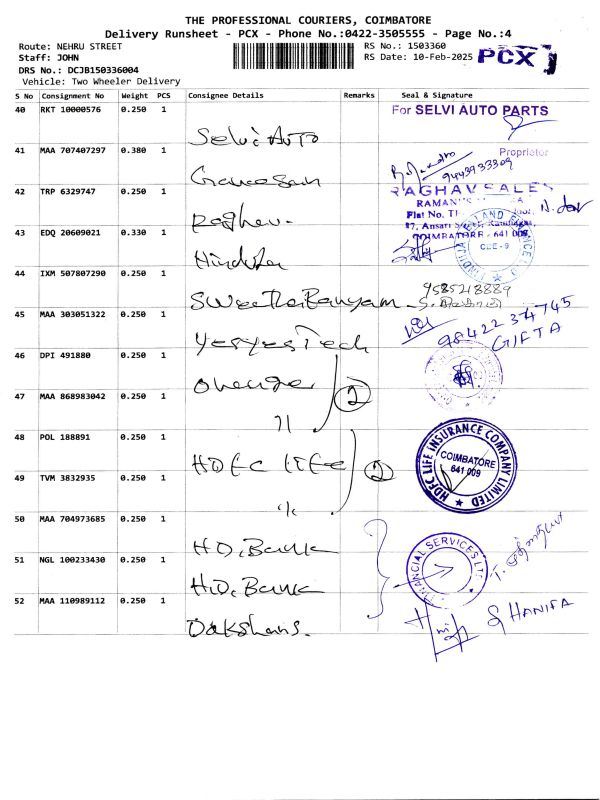 THE PROFESSIONAL COURIERS, COIMBATORE
Delivery Runsheet - PCX - Phone No.:0422-3505555 - Page No.:4
Route: NEHRU STREET
RS No.: 1503360
PCX
Staff: JOHN
RS Date: 10-Feb-2025
DRS No.: DCJB150336004
Vehicle: Two Wheeler Delivery
S No Consignment No Weight PCS Consignee Details Remarks Seal & Signature
40 RKT 10000576 0.250 1 Selvi Auto
For SELVI AUTO PARTS
Proprietor
41 MAA 707407297 0.380 1 Ganesan
9443933309
42 TRP 6329747 0.250 1 Raghav
RAGHAV SALES
Flat No.
COIMBATORE - 641 009
43 EDQ 20609021 0.330 1
CBE-9
44 IXM 507807290 0.250 1
9585218889
45 MAA 303051322 0.250 1 yesyes Tech
98422 34745
GIFTA
46 DPI 491880 0.250 1
47 MAA 868983042 0.250 1 11
2
48 POL 188891 0.250 1 HDFC LIFE
HDFC LIFE INSURANCE COMPANY LIMITED
COIMBATORE
641 009
49 TVM 3832935 0.250 1
2
50 MAA 704973685 0.250 1 HD. Bank
51 NGL 100233430 0.250 1 H.D. Bank
FINANCIAL SERVICES LTD
52 MAA 110989112 0.250 1 Dakshans.
S HANIFA